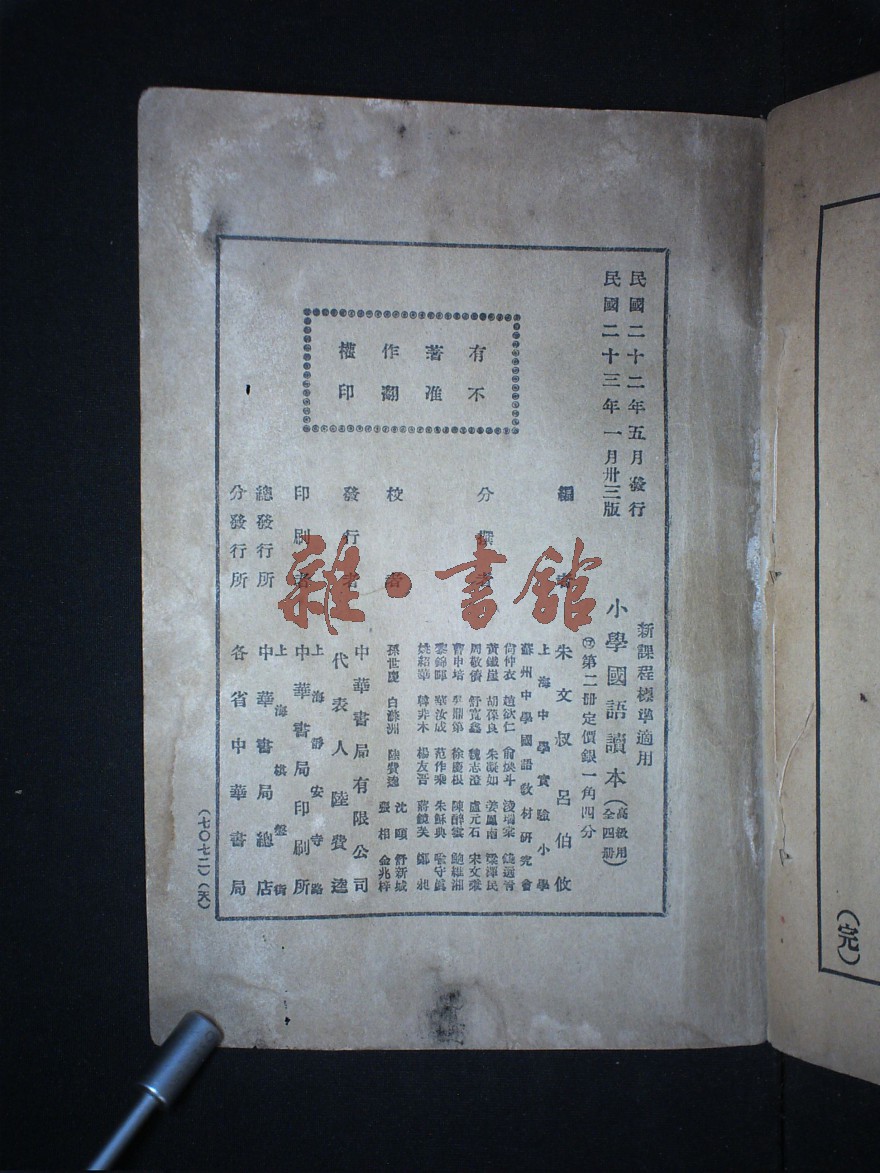 民國二十二年五月發行
民國二十三年一月卅三版
新課程標準適用
小學國語讀本
(高級用
全四册)
第二册定價銀一角四分
有著作權
不准翻印
編者
朱文叔 呂伯攸
分撰者
上海中學實驗小學
蘇州中學國語教材研究會
尙仲衣 趙欲仁 俞煥斗
黃鐵崖 胡葆良 朱凝如 姜鳳南
周敬儕 舒寬鑫 魏志澄 盧元石 宋文
曹申培 徐慶根 陳醉雲 鮑維湘
黎錦暉 范作乘 朱穌典 喻守眞
姚紹華 韓非木 楊友吾 蔣鏡芙 鄭昶
校者
孫世慶 白滌洲 陸費逵
沈頤 舒新城
張相 金兆梓
發行者
中華書局有限公司
代表人 陸費逵
印刷者
上海靜安寺路
中華書局印刷所
總發行所
上海棋盤街
中華書局總店
分發行所
各省中華書局
(七〇七二)(天)
(完)
雜·書館